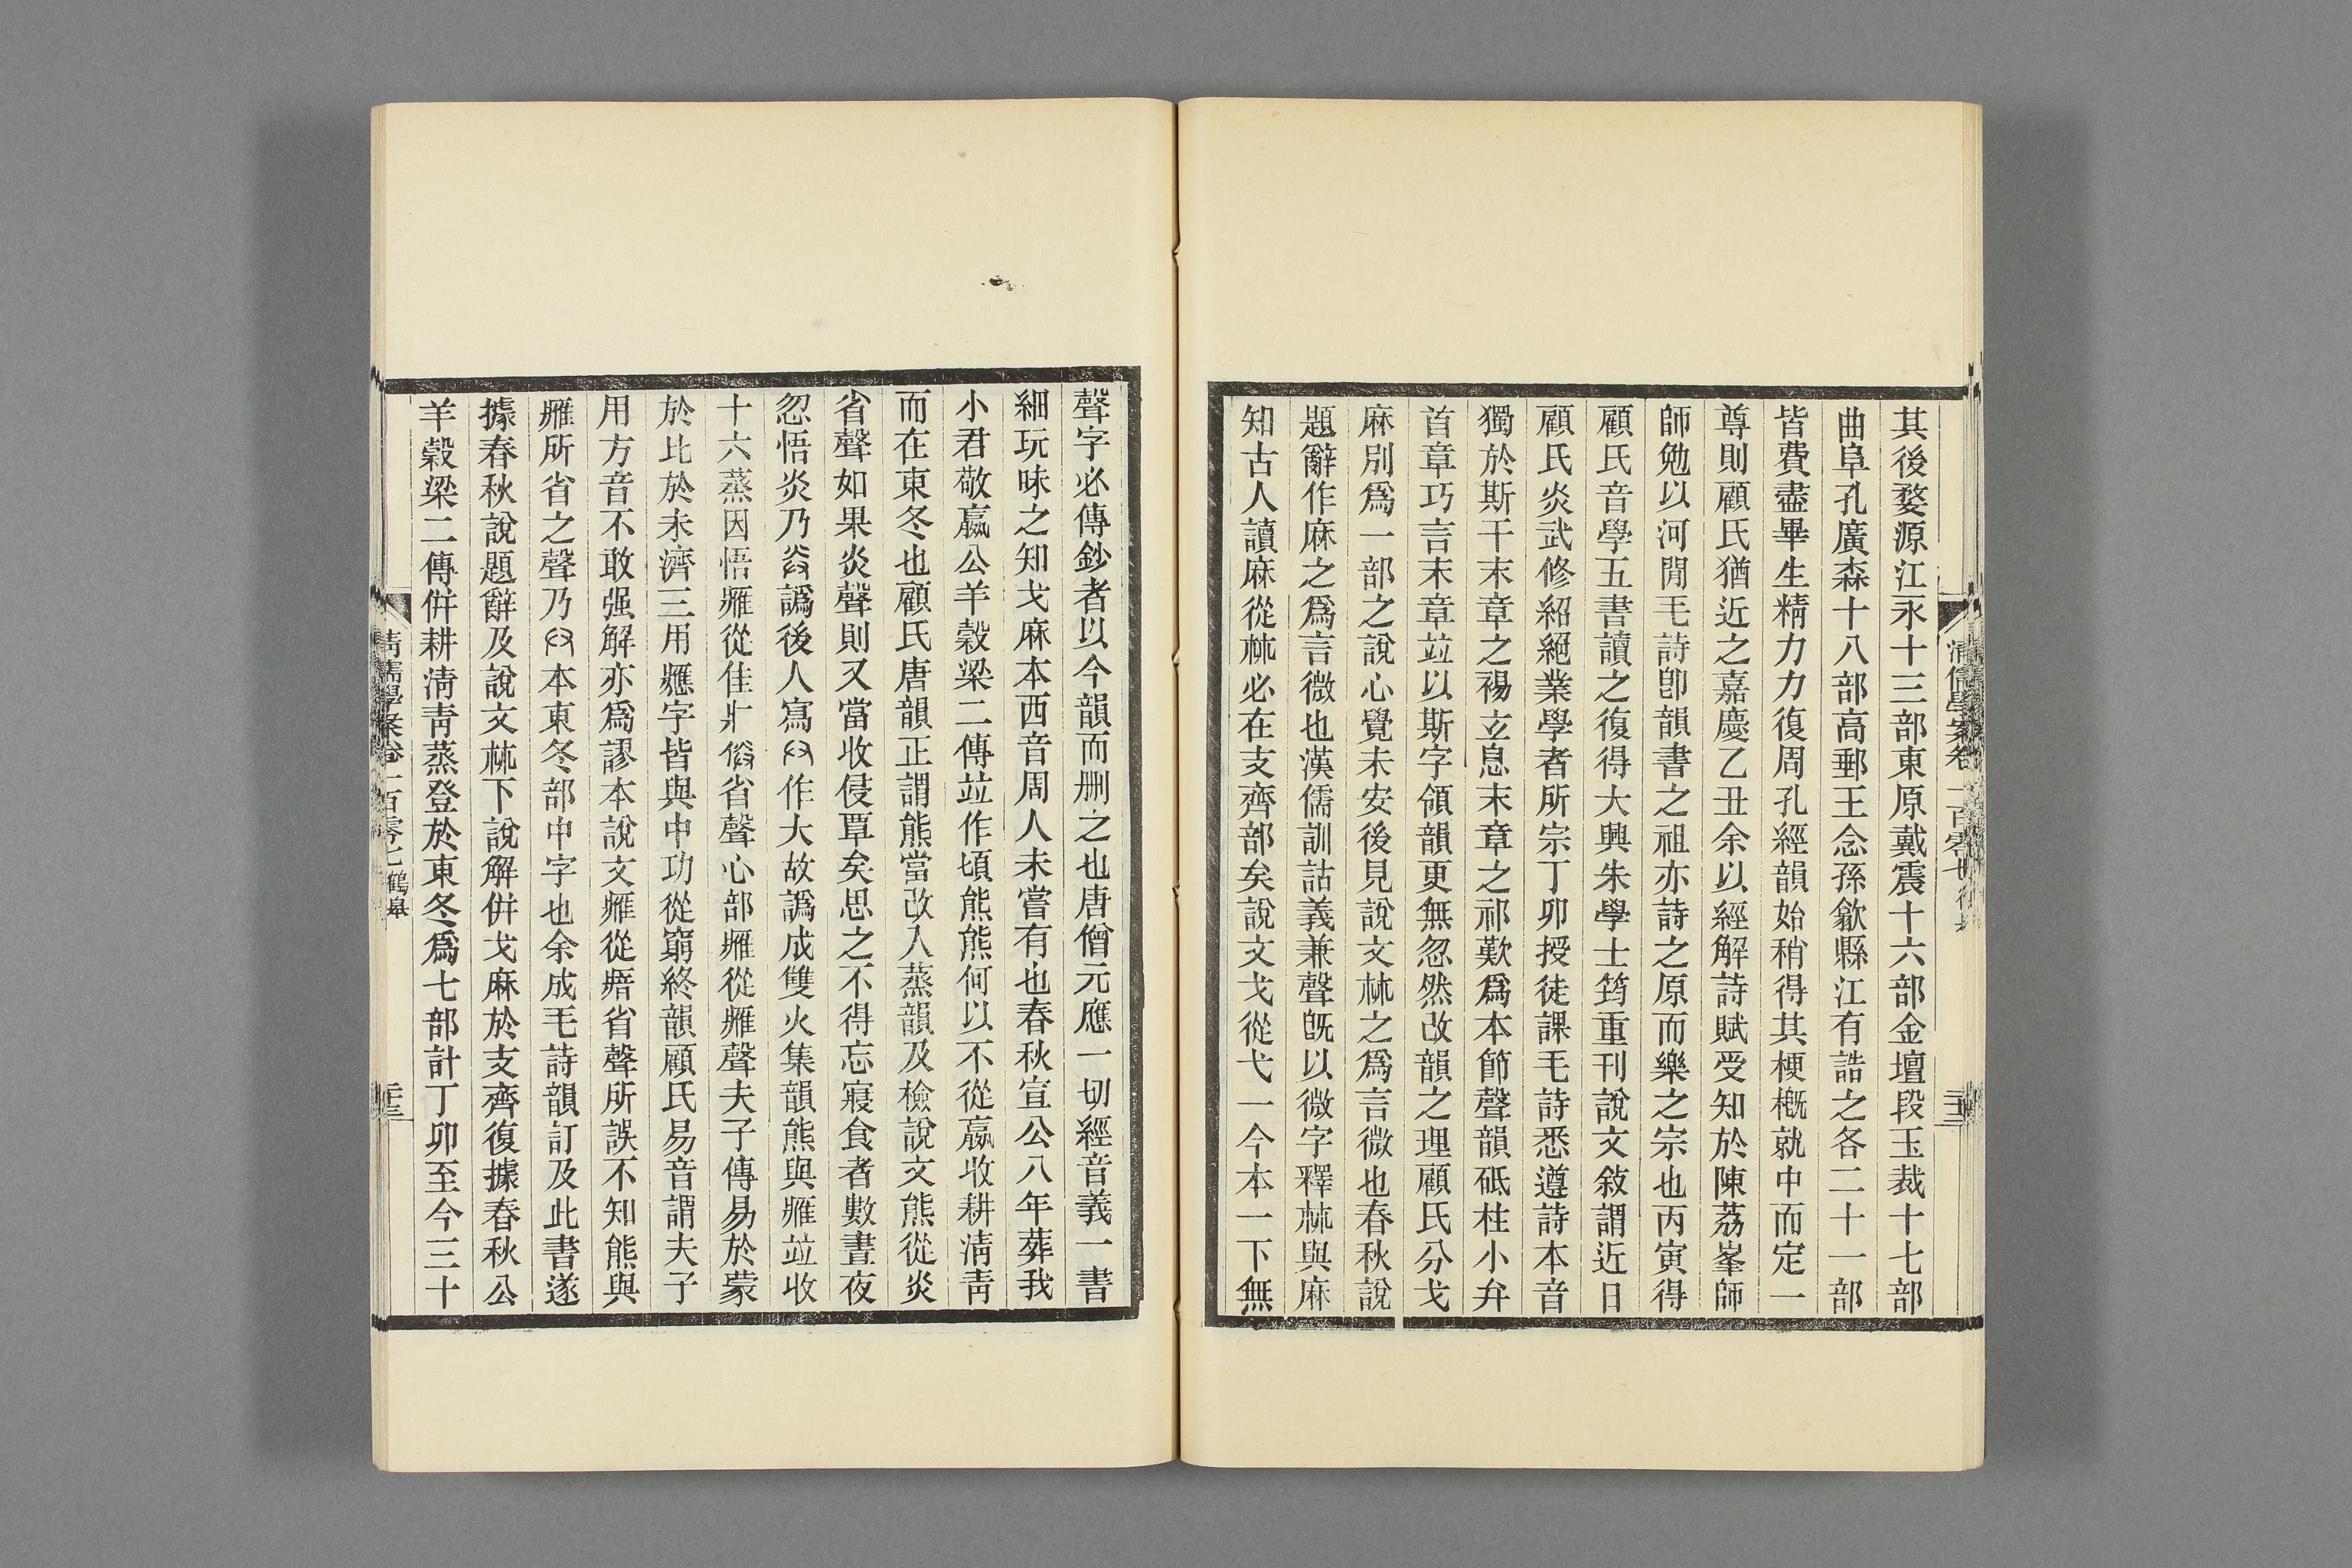 其後婺源江永十三部東原戴震十六部金壇段玉裁十七部
曲阜孔廣森十八部高郵王念孫歙縣江有誥之各二十一部
皆費盡畢生精力力復周孔經韻始稍得其梗槪就中而定一
尊則顧氏猶近之嘉慶乙丑余以經解詩賦受知於陳荔峯師
師勉以河閒毛詩卽韻書之祖亦詩之原而樂之宗也丙寅得
顧氏音學五書讀之復得大興朱學士筠重刊說文敍謂近日
顧氏炎武修紹絕業學者所宗丁卯授徒課毛詩悉遵詩本音
獨於斯干末章之裼玄息末章之祁歎爲本節聲韻砥柱小弁
首章巧言末章竝以斯字領韻更無忽然改韻之理顧氏分戈
麻別爲一部之說心覺未安後見說文𣏟之爲言微也春秋說
題辭作麻之爲言微也漢儒訓詁義兼聲旣以微字釋𣏟與麻
知古人讀麻從𣏟必在支齊部矣說文戈從弋一今本一下無
聲字必傳鈔者以今韻而刪之也唐僧元應一切經音義一書
細玩味之知戈麻本西音周人未嘗有也春秋宣公八年葬我
小君敬嬴公羊穀梁二傳竝作頃熊熊何以不從嬴收耕淸靑
而在東冬也顧氏唐韻正謂熊當改入蒸韻及檢說文熊從炎
省聲如果炎聲則又當收侵覃矣思之不得忘寢食者數晝夜
忽悟炎乃譌後人寫作大故譌成雙火集韻熊與䧹竝收
十六蒸因悟䧹從隹疒省聲心部䧹從䧹聲夫子傳易於蒙
於比於未濟三用應字皆與中功從窮終韻顧氏易音謂夫子
用方音不敢强解亦爲謬本說文䧹從瘖省聲所誤不知熊與
䧹所省之聲乃本東冬部中字也余成毛詩韻訂及此書遂
據春秋說題辭及說文𣏟下說解併戈麻於支齊復據春秋公
羊穀梁二傳併耕淸靑蒸登於東冬爲七部計丁卯至今三十
淸儒學案卷一百零七 鶴皋